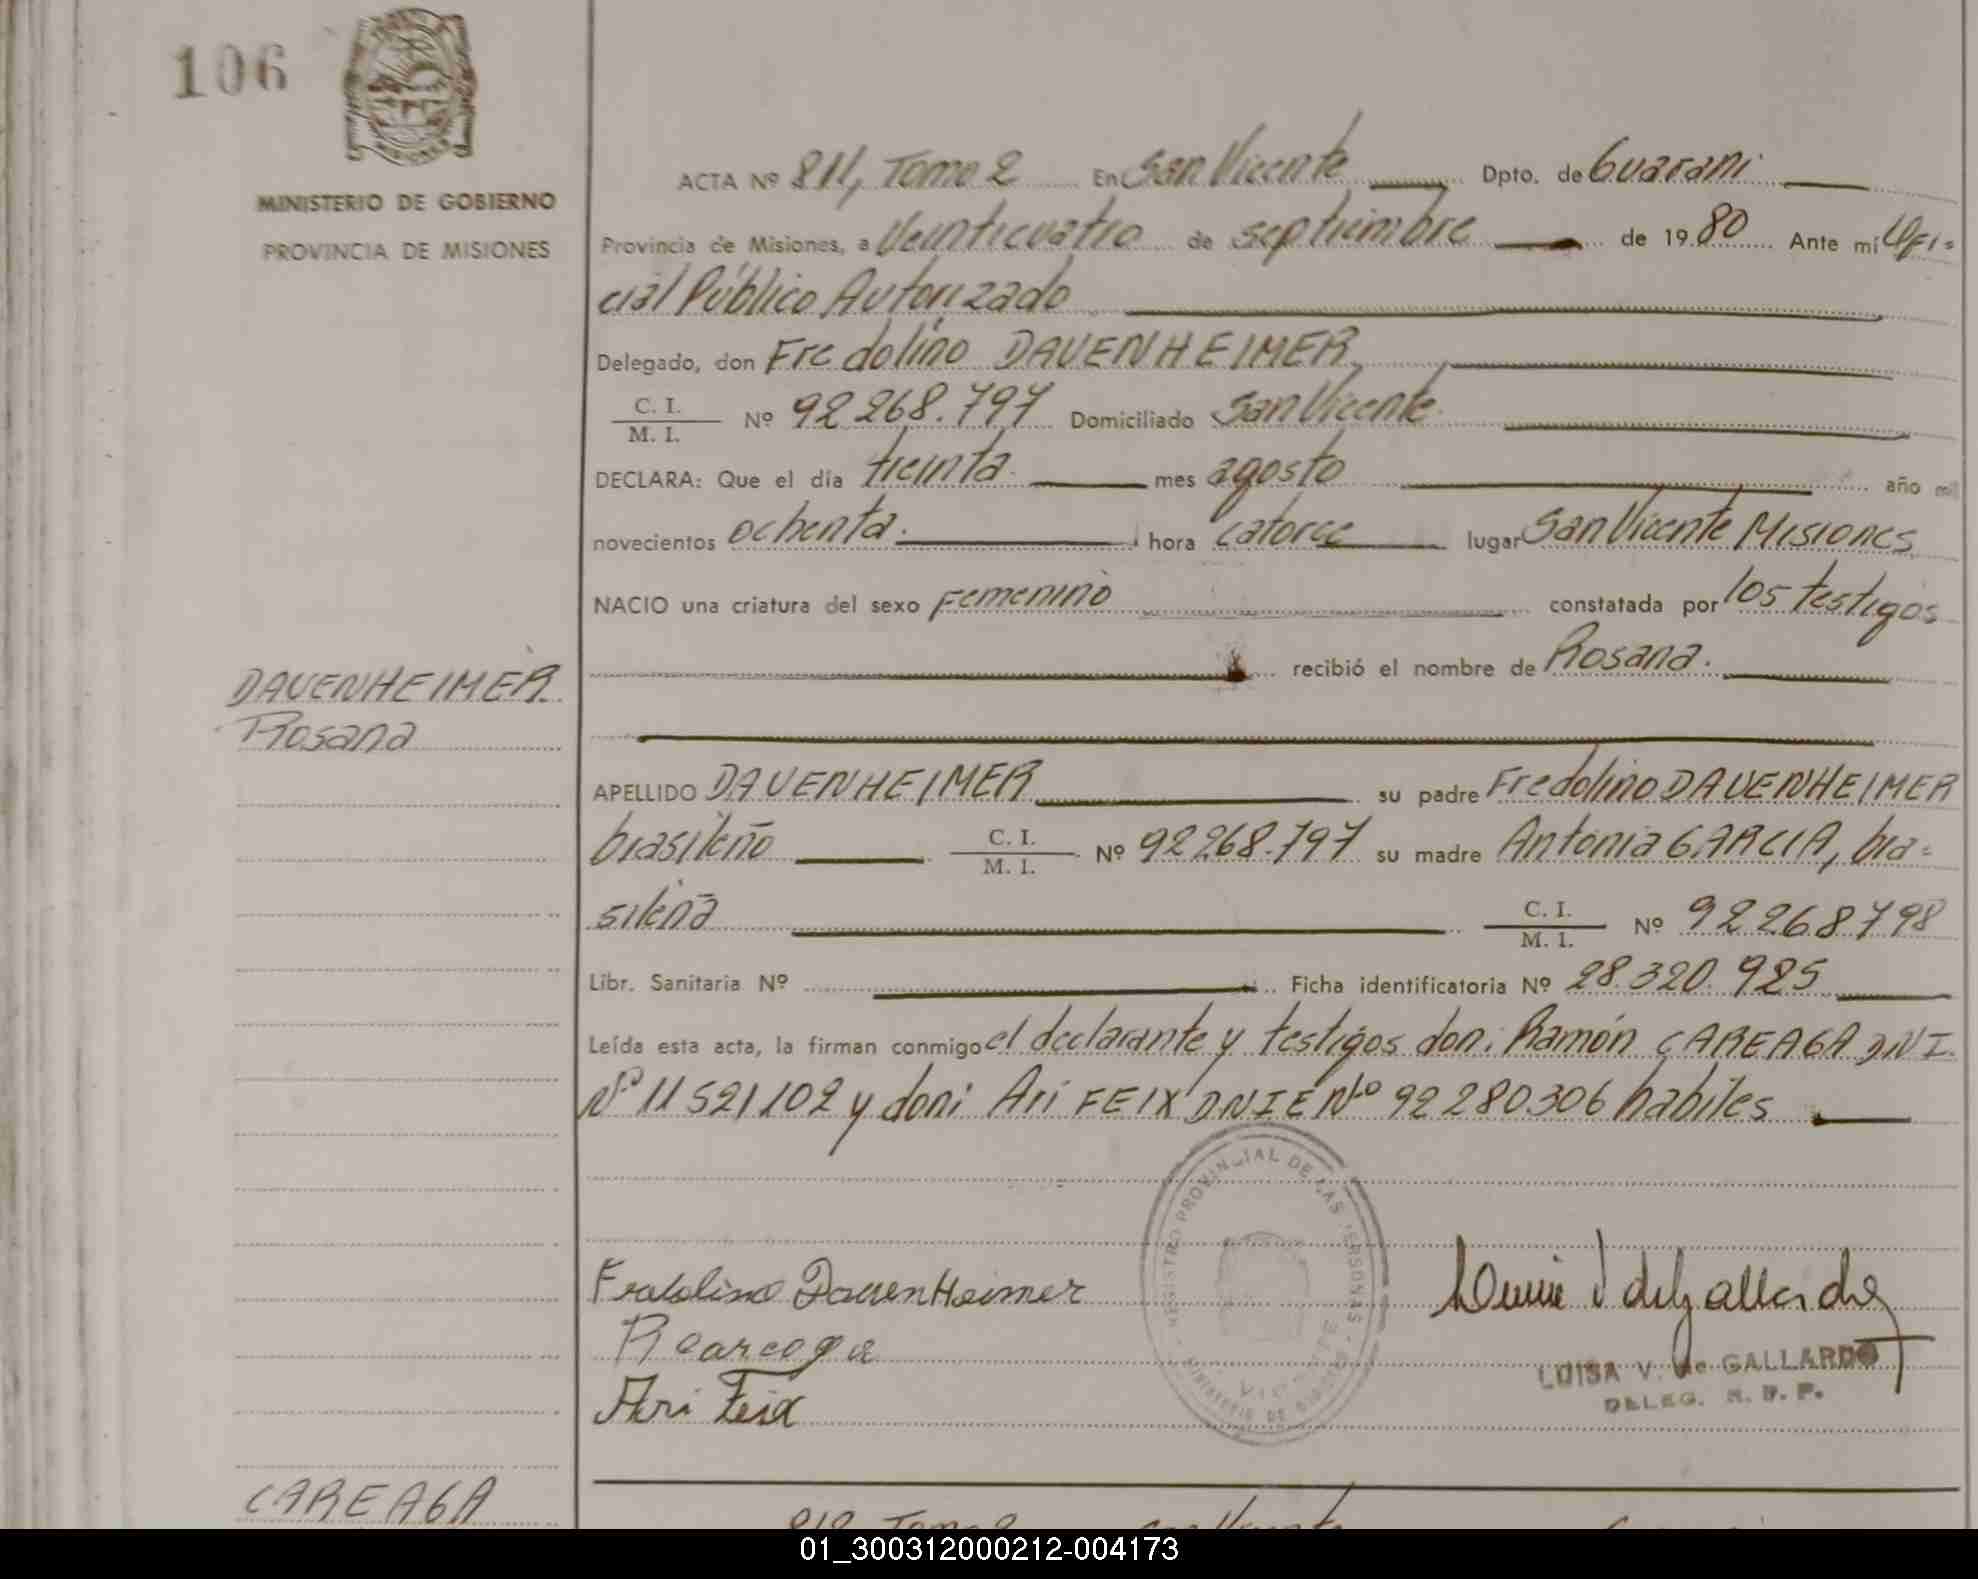 106
MINISTERIO DE GOBIERNO
PROVINCIA DE MISIONES
ACTA Nº 811, Tomo 2 En San Vicente Dpto. de Guarani
Provincia de Misiones, a Veinticuatro de septiembre de 1980 Ante mí Ofi=
cial Público Autorizado
Delegado, don Fredolino DAUENHEIMER
C. I.
M. I. Nº 92268.797 Domiciliado San Vicente
DECLARA: Que el día treinta mes agosto año mil
novecientos ochenta. hora catorce lugar San Vicente Misiones
NACIO una criatura del sexo Femenino constatada por los testigos
recibió el nombre de Rosana.
DAUENHEIMER
Rosana
APELLIDO DAUENHEIMER su padre Fredolino DAUENHEIMER
brasileño C. I.
M. I. Nº 92268.797 su madre Antonia GARCIA, bra=
sileña C. I.
M. I. Nº 92268798
Libr. Sanitaria Nº Ficha identificatoria Nº 28.320.925
Leída esta acta, la firman conmigo el declarante y testigos don: Ramón CAREAGA DNI.
Nº 11521102 y don: Ari FEIX DNIE Nº 92280306 habiles
REGISTRO PROVINCIAL DE LAS PERSONAS
MINISTERIO DE GOBIERNO
Fredolino DauenHeimer
R Careaga
Ari Feix
LUISA V. de GALLARDO
DELEG. R. P. P.
CAREAGA
812 Tomo 2 San Vicente
01_300312000212-004173